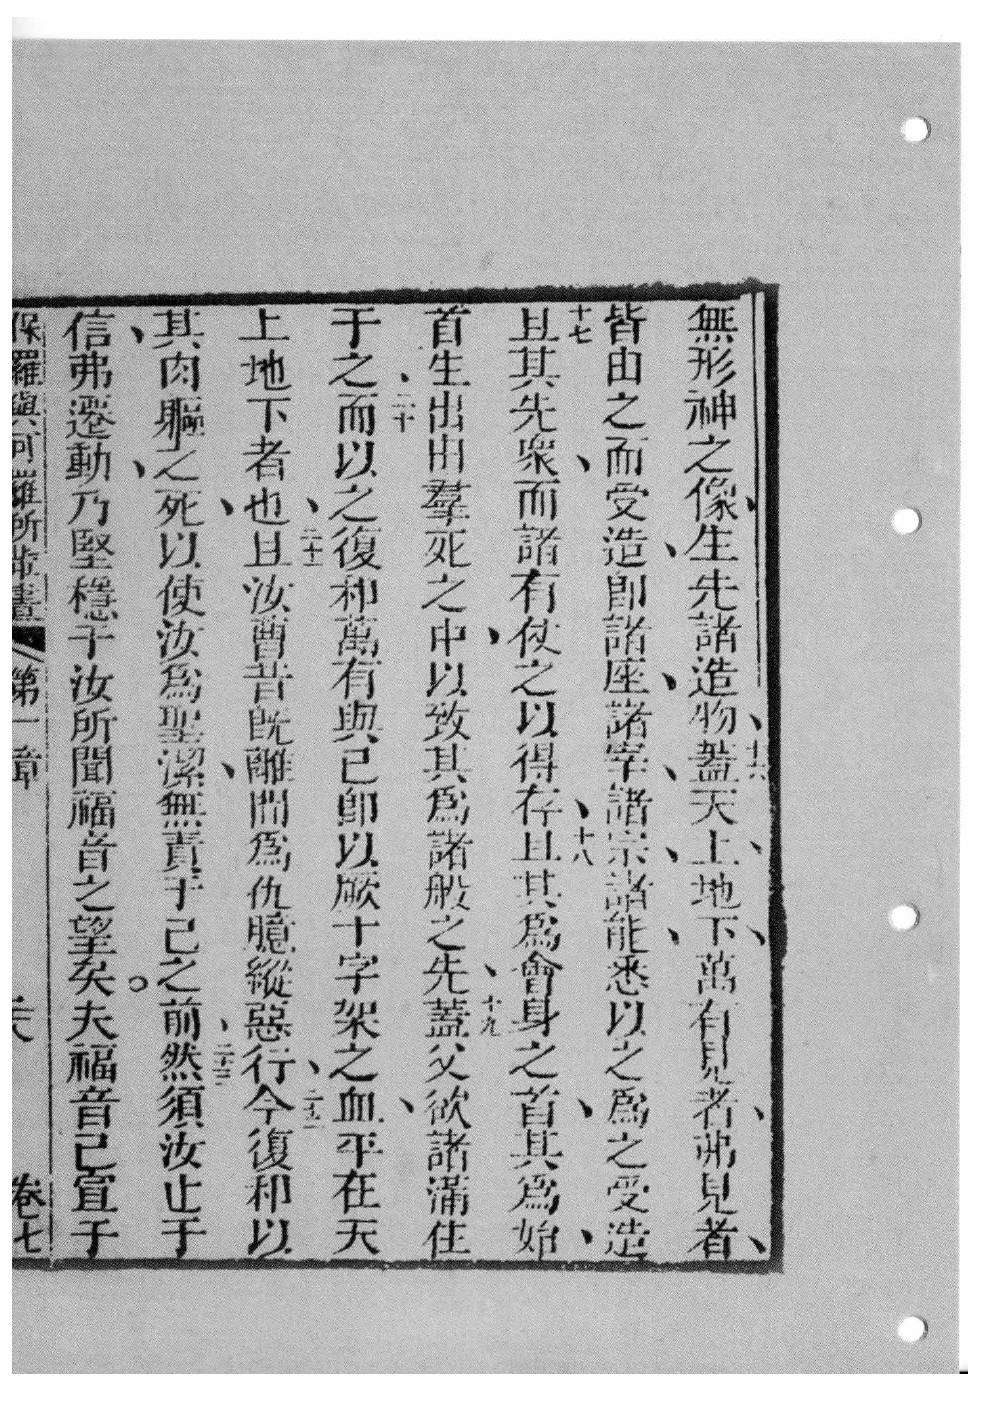 無形神之像、生先諸造物、十六蓋天上、地下、萬有見者、弗見者、
皆由之而受造、即諸座、諸宰、諸宗、諸能、悉以之爲之受造
十七且其先衆、而諸有仗之以得存、十八且其爲會身之首、其爲始、
首生出由羣死之中、以致其爲諸般之先、十九蓋父欲諸滿住
于之、二十而以之復和萬有與己即以厥十字架之血、平在天
上地下者也、二十一且汝曹昔既離間爲仇臆縱惡行、二十二今復和以
其肉軀之死、以使汝爲聖潔、無責于己之前、二十三然須汝止于
信、弗遷動、乃堅穩于汝所聞福音之望矣。夫福音已宣于
保羅與可羅所輩書 第一章 卷七